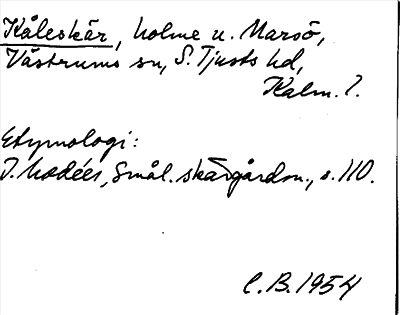 Kåleskär, holme u. Marsö,
Västrums sn, S. Tjusts hd,
Kalm. l.
Etymologi:
I. Modéer, Smål. skärgårdsn., s. 110.
C.B. 1954